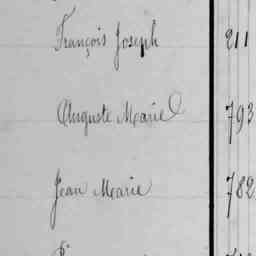 François Joseph 211
Auguste Marie 793
Jean Marie 782